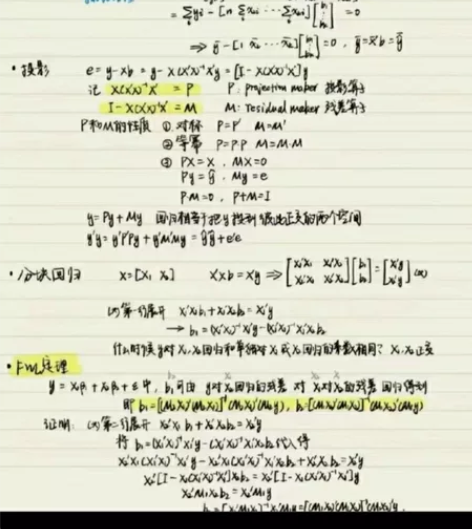 = Σyi - [n Σx₂ᵢ ... Σxₖᵢ][b₁ ⋮ bₖ] = 0
⇒ ȳ - [1 x̄₂ ... x̄ₖ][b₁ ⋮ bₖ] = 0 , ȳ = x̄'b =
• 投影 e = y - Xb = y - X(X'X)⁻¹X'y = [I - X(X'X)⁻¹X']y
记 X(X'X)⁻¹X' = P P: projection maker 投影算子
I - X(X'X)⁻¹X' = M M: residual maker 残差算子
P和M的性质 ① 对称 P=P' M=M'
② 字幂 P=P·P M=M·M
③ PX=X , MX=0
Py=ŷ , My=e
PM=0 , P+M=I
y=Py+My 回归相当于把y投到彼此正交的两个空间
y'y=y'P'Py+y'M'My=ŷ'ŷ+e'e
• 分块回归 X=[X₁ X₂] X'Xb=X'y ⇒ [X₁'X₁ X₁'X₂ X₂'X₁ X₂'X₂][b₁ b₂]=[X₁'y X₂'y]
第一行展开 X₁'X₁b₁+X₁'X₂b₂=X₁'y
→ b₁=(X₁'X₁)⁻¹X₁'y-(X₁'X₁)⁻¹X₁'X₂b₂
什么时候y对X₁,X₂回归和单独对X₁或X₂回归的系数相同? X₁,X₂正交
• FWL定理
y=X₁β₁+X₂β₂+ε中, b₁可由 y对X₂回归的残差 对 X₁对X₂的残差 回归得到
即 b₁=[(M₂X₁)'(M₂X₁)]⁻¹(M₂X₁)'(M₂y), b₂=[(M₁X₂)'(M₁X₂)]⁻¹(M₁X₂)'(M₁y)
证明: 第二行展开 X₂'X₁b₁+X₂'X₂b₂=X₂'y
将 b₁=(X₁'X₁)⁻¹X₁'y-(X₁'X₁)⁻¹X₁'X₂b₂代入得
X₂'X₁(X₁'X₁)⁻¹X₁'y-X₂'X₁(X₁'X₁)⁻¹X₁'X₂b₂+X₂'X₂b₂=X₂'y
X₂'[I-X₁(X₁'X₁)⁻¹X₁']X₂b₂=X₂'[I-X₁(X₁'X₁)⁻¹X₁']y
X₂'M₁X₂b₂=X₂'M₁y